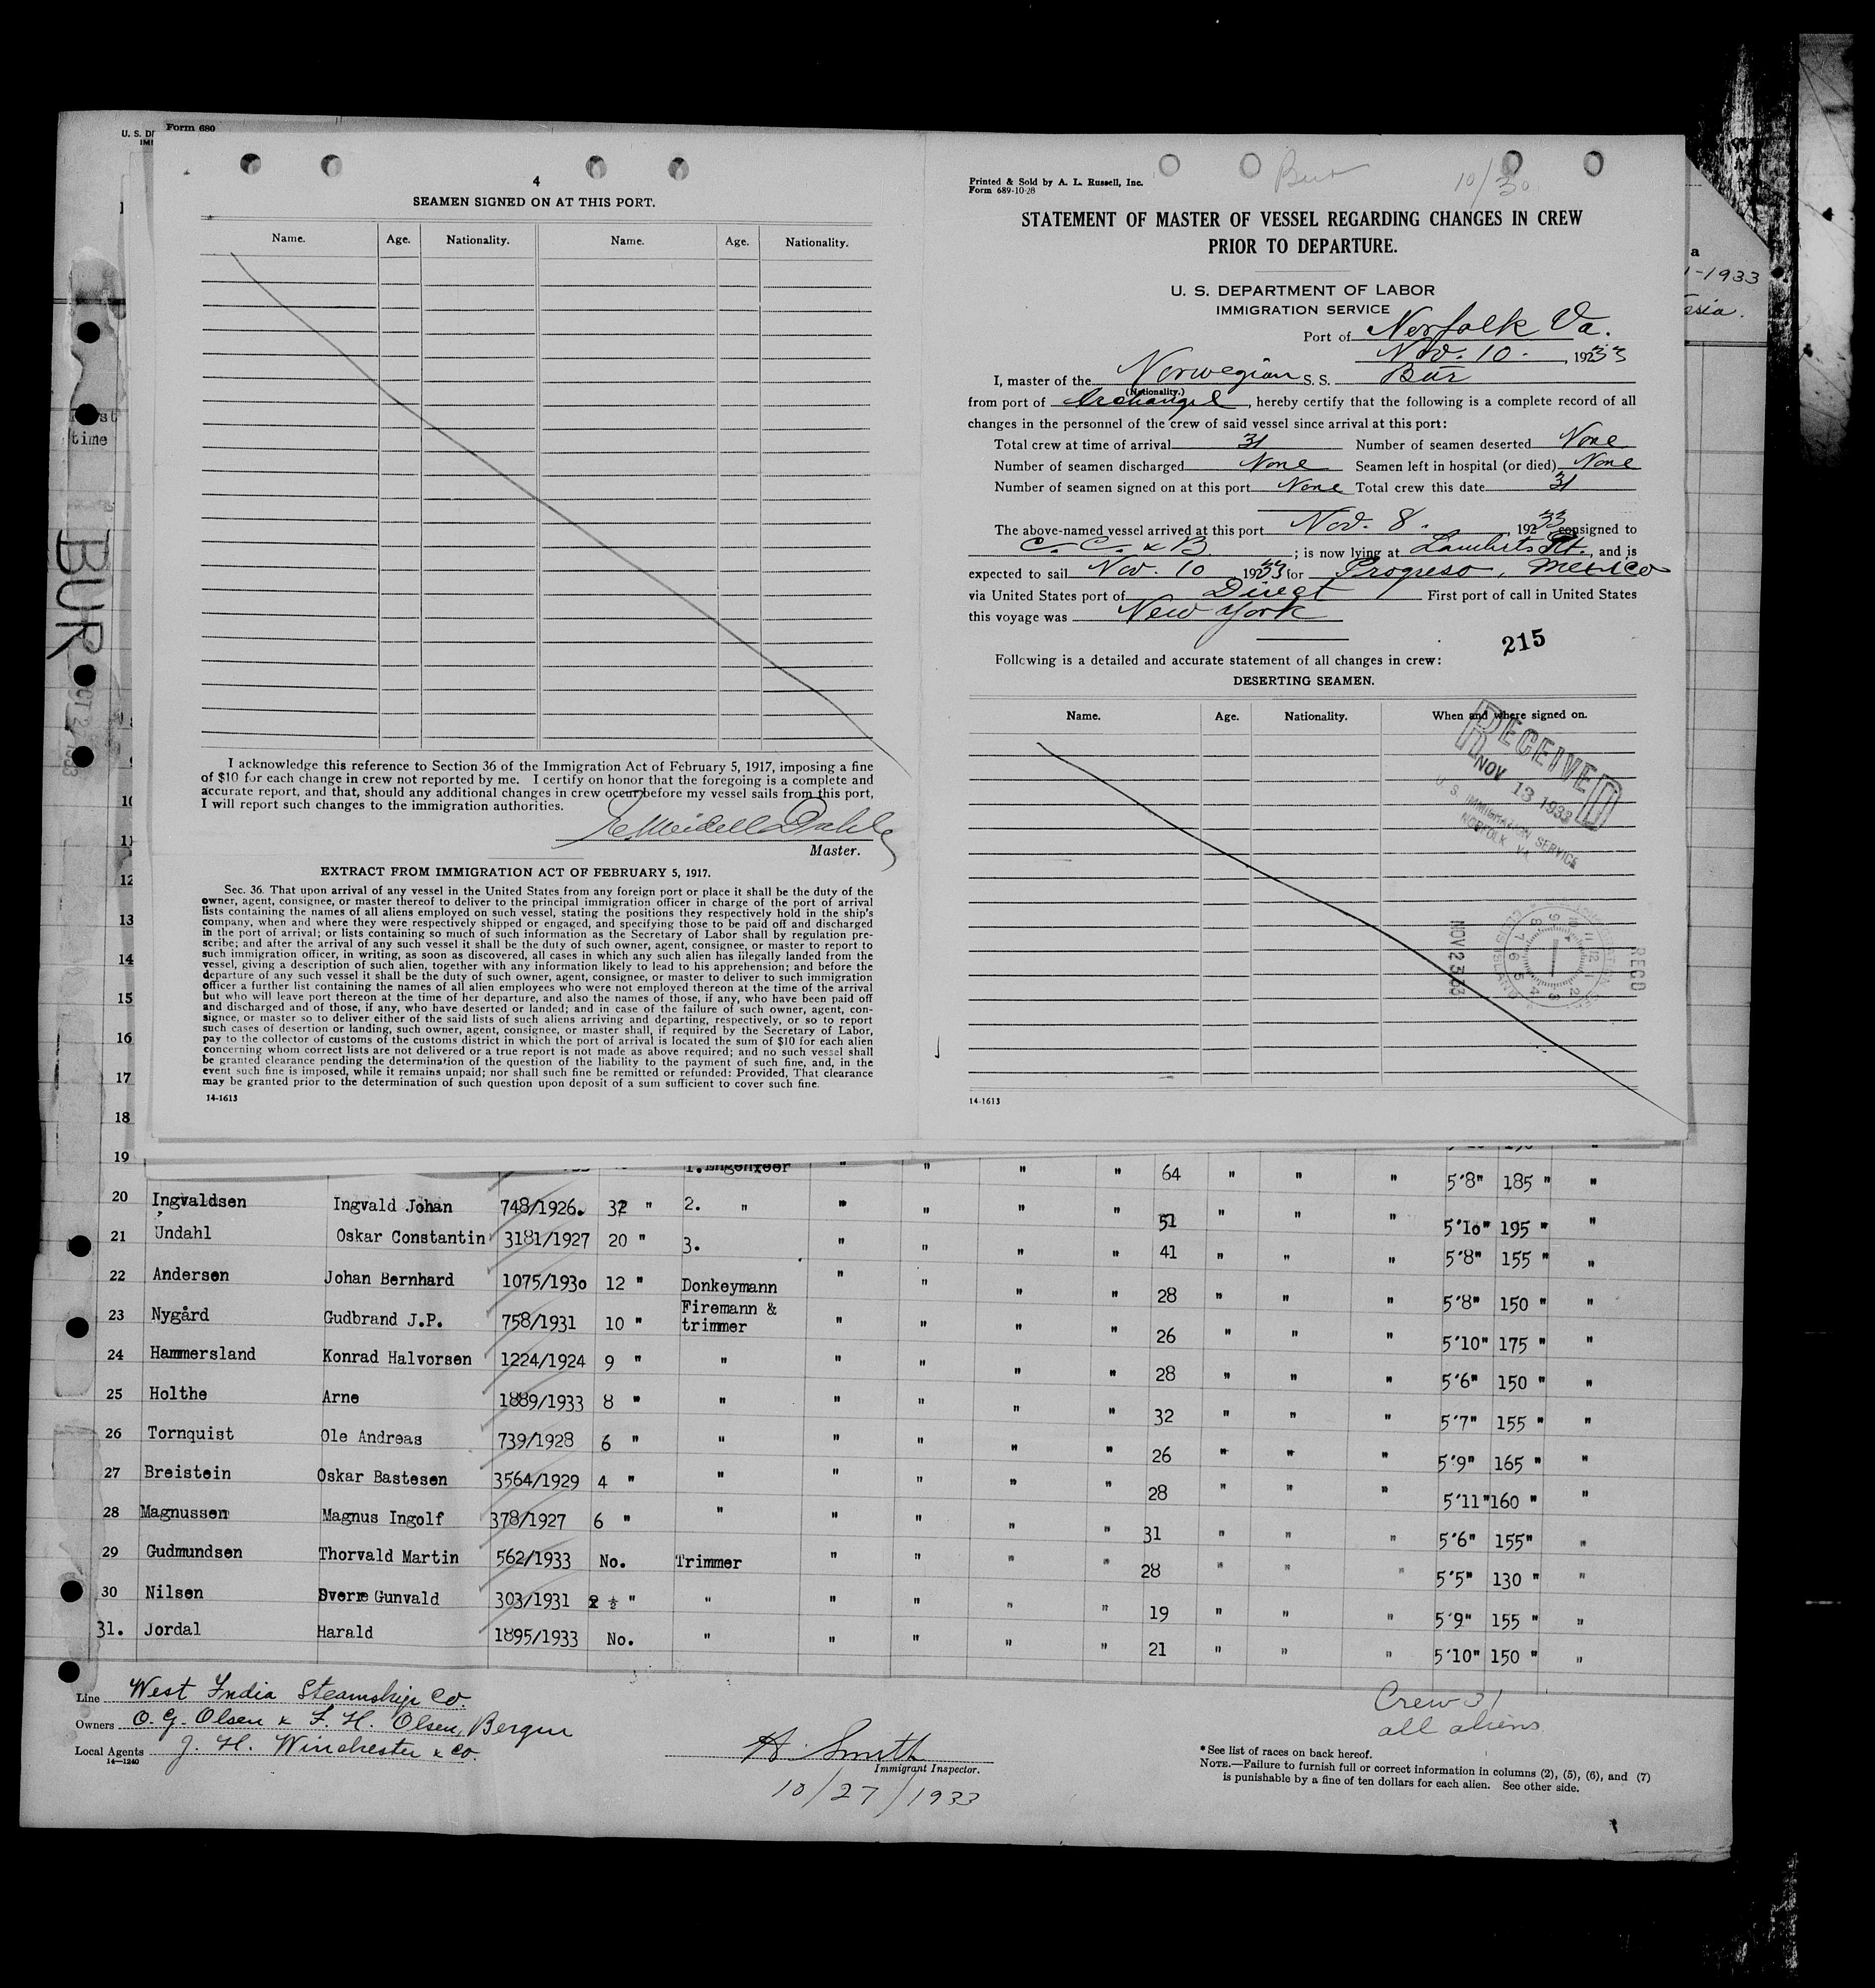 U. S. DE
IMI
Form 680
4
SEAMEN SIGNED ON AT THIS PORT.
Name. Age. Nationality. Name. Age. Nationality.
I acknowledge this reference to Section 36 of the Immigration Act of February 5, 1917, imposing a fine
of $10 for each change in crew not reported by me. I certify on honor that the foregoing is a complete and
accurate report, and that, should any additional changes in crew occur before my vessel sails from this port,
I will report such changes to the immigration authorities.
Master.
EXTRACT FROM IMMIGRATION ACT OF FEBRUARY 5, 1917.
Sec. 36. That upon arrival of any vessel in the United States from any foreign port or place it shall be the duty of the
owner, agent, consignee, or master thereof to deliver to the principal immigration officer in charge of the port of arrival
lists containing the names of all aliens employed on such vessel, stating the positions they respectively hold in the ship's
company, when and where they were respectively shipped or engaged, and specifying those to be paid off and discharged
in the port of arrival; or lists containing so much of such information as the Secretary of Labor shall by regulation pre-
scribe; and after the arrival of any such vessel it shall be the duty of such owner, agent, consignee, or master to report to
such immigration officer, in writing, as soon as discovered, all cases in which any such alien has illegally landed from the
vessel, giving a description of such alien, together with any information likely to lead to his apprehension; and before the
departure of any such vessel it shall be the duty of such owner, agent, consignee, or master to deliver to such immigration
officer a further list containing the names of all alien employees who were not employed thereon at the time of the arrival
but who will leave port thereon at the time of her departure, and also the names of those, if any, who have been paid off
and discharged and of those, if any, who have deserted or landed; and in case of the failure of such owner, agent, con-
signee, or master so to deliver either of the said lists of such aliens arriving and departing, respectively, or so to report
such cases of desertion or landing, such owner, agent, consignee, or master shall, if required by the Secretary of Labor,
pay to the collector of customs of the customs district in which the port of arrival is located the sum of $10 for each alien
concerning whom correct lists are not delivered or a true report is not made as above required; and no such vessel shall
be granted clearance pending the determination of the question of the liability to the payment of such fine, and, in the
event such fine is imposed, while it remains unpaid; nor shall such fine be remitted or refunded: Provided, That clearance
may be granted prior to the determination of such question upon deposit of a sum sufficient to cover such fine.
14-1613
Bur 10/30
Printed & Sold by A. L. Russell, Inc.
Form 689-10-28
STATEMENT OF MASTER OF VESSEL REGARDING CHANGES IN CREW
PRIOR TO DEPARTURE.
U. S. DEPARTMENT OF LABOR
IMMIGRATION SERVICE
Port of Norfolk Va.
Nov. 10. 1933
I, master of the Norwegian S. S. Bur
(Nationality.)
from port of Archangel, hereby certify that the following is a complete record of all
changes in the personnel of the crew of said vessel since arrival at this port:
Total crew at time of arrival 31 Number of seamen deserted None
Number of seamen discharged None Seamen left in hospital (or died) None
Number of seamen signed on at this port None Total crew this date 31
The above-named vessel arrived at this port Nov. 8. 1933 consigned to
C. C. & B ; is now lying at Lamberts Pt., and is
expected to sail Nov. 10 1933 for Progreso, Mexico
via United States port of Direct First port of call in United States
this voyage was New York
215
Following is a detailed and accurate statement of all changes in crew:
DESERTING SEAMEN.
Name. Age. Nationality. When and where signed on.
RECEIVED
NOV 13 1933
U. S. IMMIGRATION SERVICE
NORFOLK VA
REC'D
14-1613
a
1-1933
ssia.
time
BUR
10
11
12
13
14
15
16
17
18
19 1.Engeneer " " " " 64 " " " 5'8" 185 " "
20 Ingvaldsen Ingvald Johan 748/1926. 32 " 2. " " " " " 51 " " " 5'10" 195 " "
21 Undahl Oskar Constantin 3181/1927 20 " 3. " " " " 41 " " " 5'8" 155 " "
22 Andersen Johan Bernhard 1075/1930 12 " Donkeymann " " " " 28 " " " 5'8" 150 " "
23 Nygård Gudbrand J.P. 758/1931 10 " Firemann & trimmer " " " " 26 " " " 5'10" 175 " "
24 Hammersland Konrad Halvorsen 1224/1924 9 " " " " " " 28 " " " 5'6" 150 " "
25 Holthe Arne 1889/1933 8 " " " " " " 32 " " " 5'7" 155 " "
26 Tornquist Ole Andreas 739/1928 6 " " " " " " 26 " " " 5'9" 165 " "
27 Breistein Oskar Bastesen 3564/1929 4 " " " " " " 28 " " " 5'11" 160 " "
28 Magnussen Magnus Ingolf 378/1927 6 " " " " " " 31 " " " 5'6" 155" "
29 Gudmundsen Thorvald Martin 562/1933 No. Trimmer " " " " 28 " " " 5'5" 130 " "
30 Nilsen Sverre Gunvald 303/1931 2 ½ " " " " " " 19 " " " 5'9" 155 " "
31. Jordal Harald 1895/1933 No. " " " " " 21 " " " 5'10" 150 " "
Line West India Steamship Co.
Owners O. G. Olsen & F. H. Olsen, Bergen
Local Agents J. H. Winchester & Co.
14-1240
H. Smith
Immigrant Inspector.
10/27/1933
Crew 31
all aliens
* See list of races on back hereof.
NOTE.—Failure to furnish full or correct information in columns (2), (5), (6), and (7)
is punishable by a fine of ten dollars for each alien. See other side.